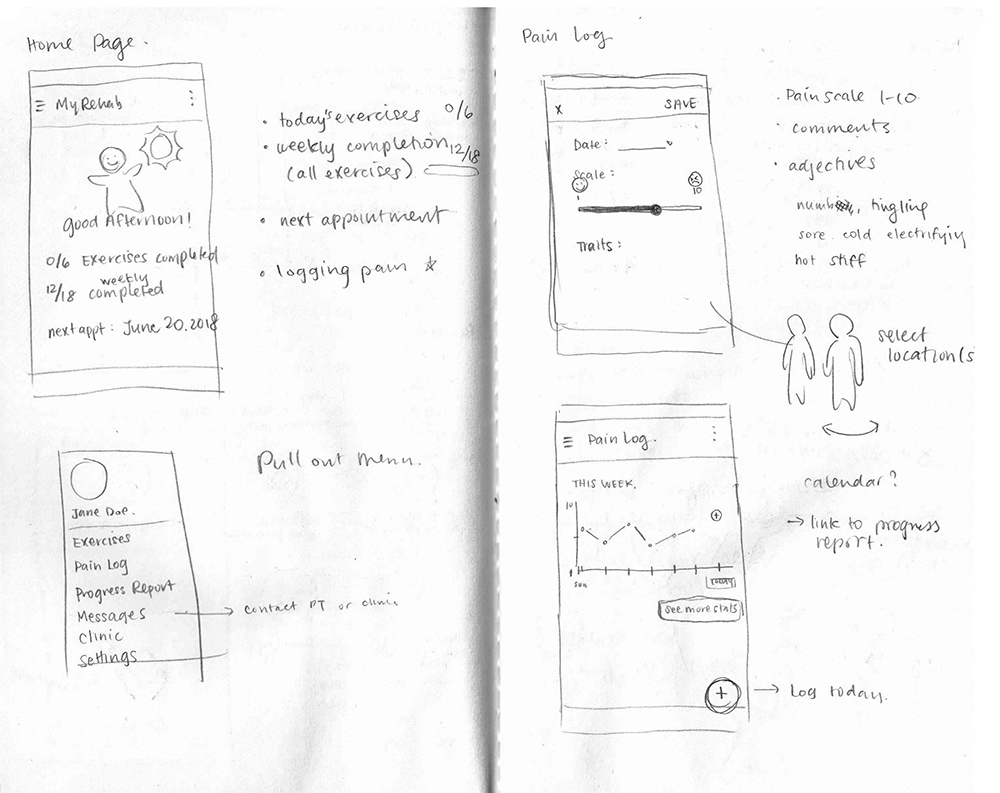 Home Page.
MyRehab
good Afternoon!
0/6 Exercises completed
weekly
12/18 completed
next appt: June 20, 2018
• today's exercises 0/6
• weekly completion 12/18
(all exercises)
• next appointment
• logging pain
Pull out menu.
Jane Doe.
Exercises
Pain Log
Progress Report
Messages
Clinic
Settings
contact PT or clinic
Pain Log
X SAVE
Date:
Scale:
1 10
Traits:
• Pain scale 1-10
• comments
• adjectives
numb, tingling
sore cold electrifying
hot stiff
select
location(s
Pain Log.
THIS WEEK.
10
+
1
sun TODAY
see more stats
+
calendar?
→ link to progress
report.
→ Log today.